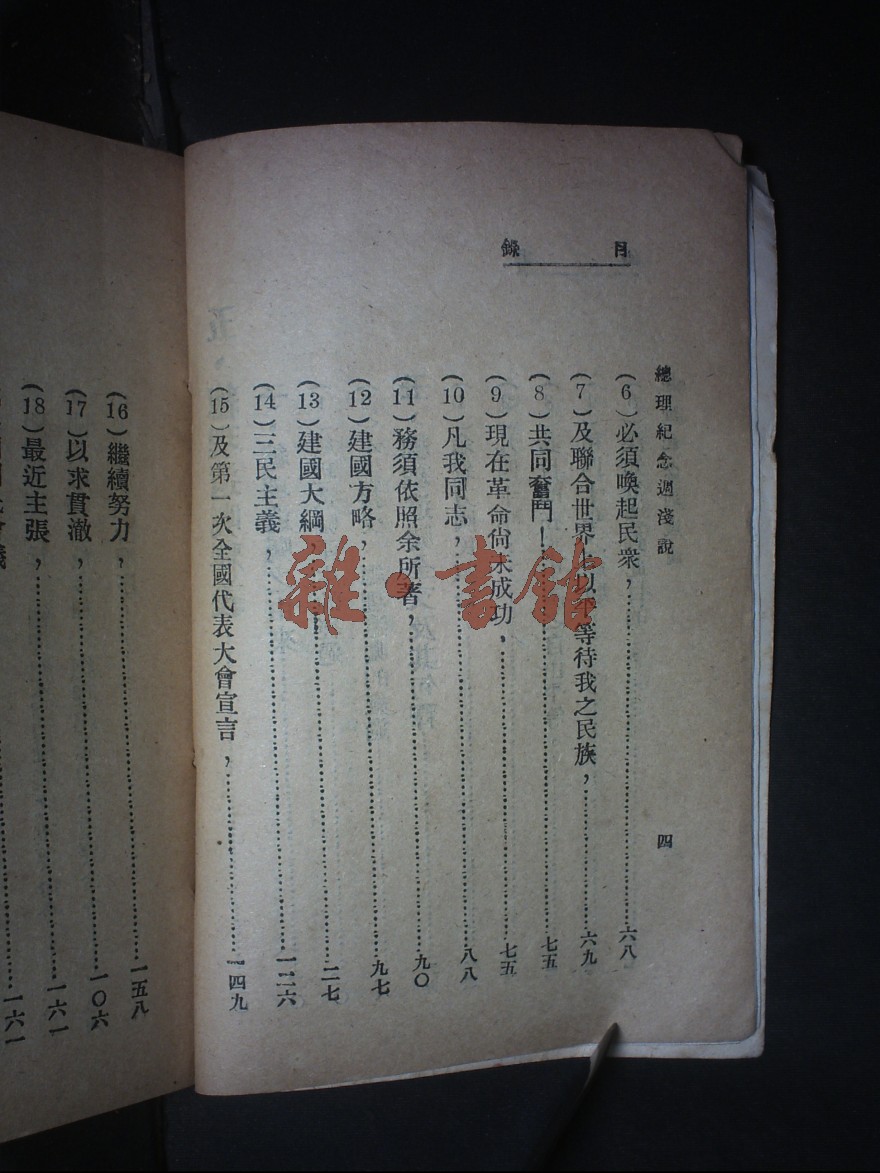 總理紀念週淺說
四
目錄
(6)必須喚起民衆，……六八
(7)及聯合世界上以平等待我之民族，……六九
(8)共同奮鬥！……七五
(9)現在革命尙未成功，……七五
(10)凡我同志，……八八
(11)務須依照余所著，……九〇
(12)建國方略，……九七
(13)建國大綱，……二七
(14)三民主義，……一二六
(15)及第一次全國代表大會宣言，……一四九
(16)繼續努力，……一五八
(17)以求貫澈，……一〇六
(18)最近主張，……一六一
一六一
雜·書館